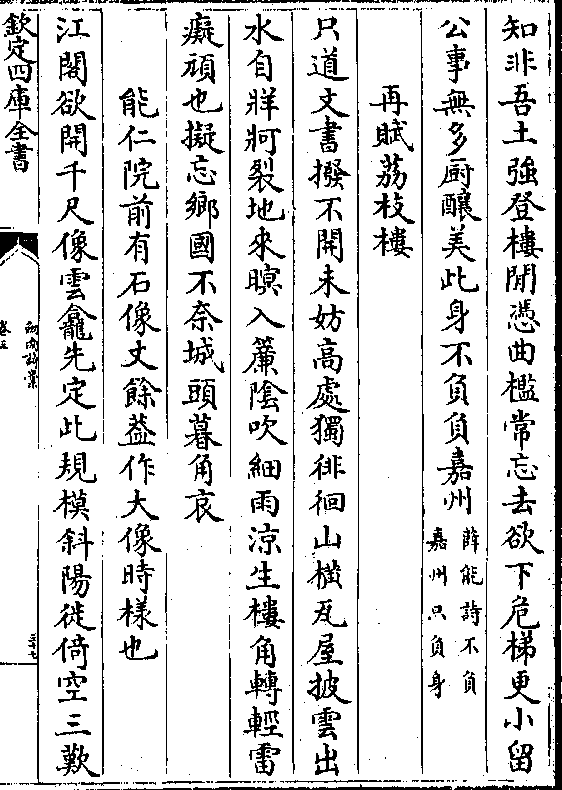 知非吾土強登樓閒憑曲檻常忘去欲下危梯更小留
公事無多厨醸美此身不負負嘉州
薛能詩不負
嘉州只負身
再賦荔枝樓
只道文書撥不開未妨高處獨徘徊山橫瓦屋披雲出
水自牂牁裂地來暝入簾陰吹細雨涼生樓角轉輕雷
癡頑也擬忘鄉國不奈城頭暮角哀
能仁院前有石像丈餘葢作大像時樣也
江閣欲開千尺像雲龕先定此規模斜陽徙倚空三歎
欽定四庫全書
劍南詩稾
卷五
三十七